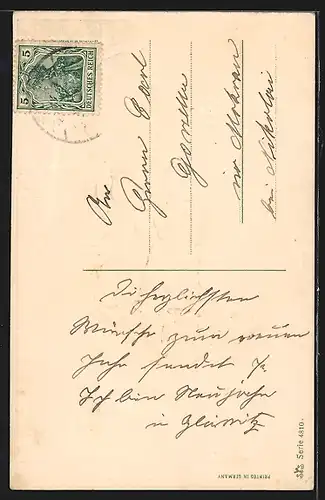 5 DEUTSCHES REICH 5
An
Herrn Carl
in Mokrau
bei Nikolai
Die herzlichsten
Wünsche zum neuen
Jahr sendet
Ich bin Neujahr
in Gleiwitz
Serie 4810
PRINTED IN GERMANY